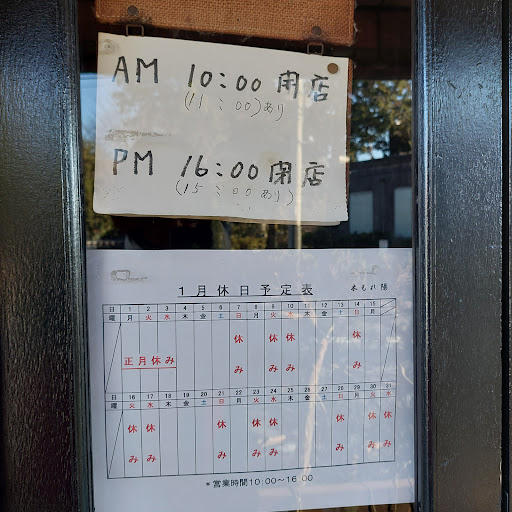 AM 10:00 閉店
(11:00)あり
PM 16:00 閉店
(15:00あり)
1月休日予定表 木もれ陽
日 1 2 3 4 5 6 7 8 9 10 11 12 13 14 15
曜 月 火 水 木 金 土 日 月 火 水 木 金 土 日 月
正月休み 休み 休み 休み 休み
日 16 17 18 19 20 21 22 23 24 25 26 27 28 29 30 31
曜 火 水 木 金 土 日 月 火 水 木 金 土 日 月 火 水
休み 休み 休み 休み 休み 休み 休み 休み
*営業時間10:00~16:00